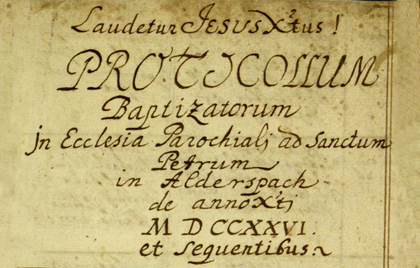 Laudetur JESUS X̃tus!
PROTICOLLUM
Baptizatorum
jn Ecclesia Parochialj ad Sanctum
Petrum
in Alderspach
de anno X̃tj
M D CCXXVI.
et sequentibus.